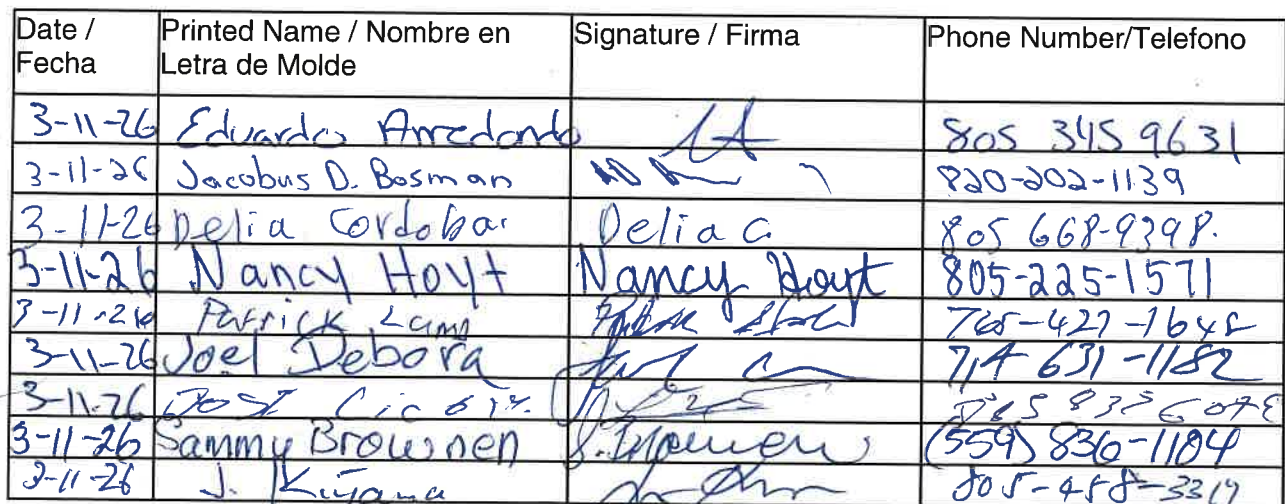 Date / Fecha Printed Name / Nombre en Letra de Molde Signature / Firma Phone Number/Telefono
3-11-26 Eduardo Arredondo 805 345 9631
3-11-26 Jacobus D. Bosman 820-202-1139
3-11-26 Delia Cordoba Delia C. 805 668-9398.
3-11-26 Nancy Hoyt Nancy Hoyt 805-225-1571
3-11-26 Patrick
3-11-26 Joel Debora 714 631-1182
3-11-26 Jose
3-11-26 Sammy Brownen S. Brownen (559) 836-1104
3-11-26 J. 805-458-3319